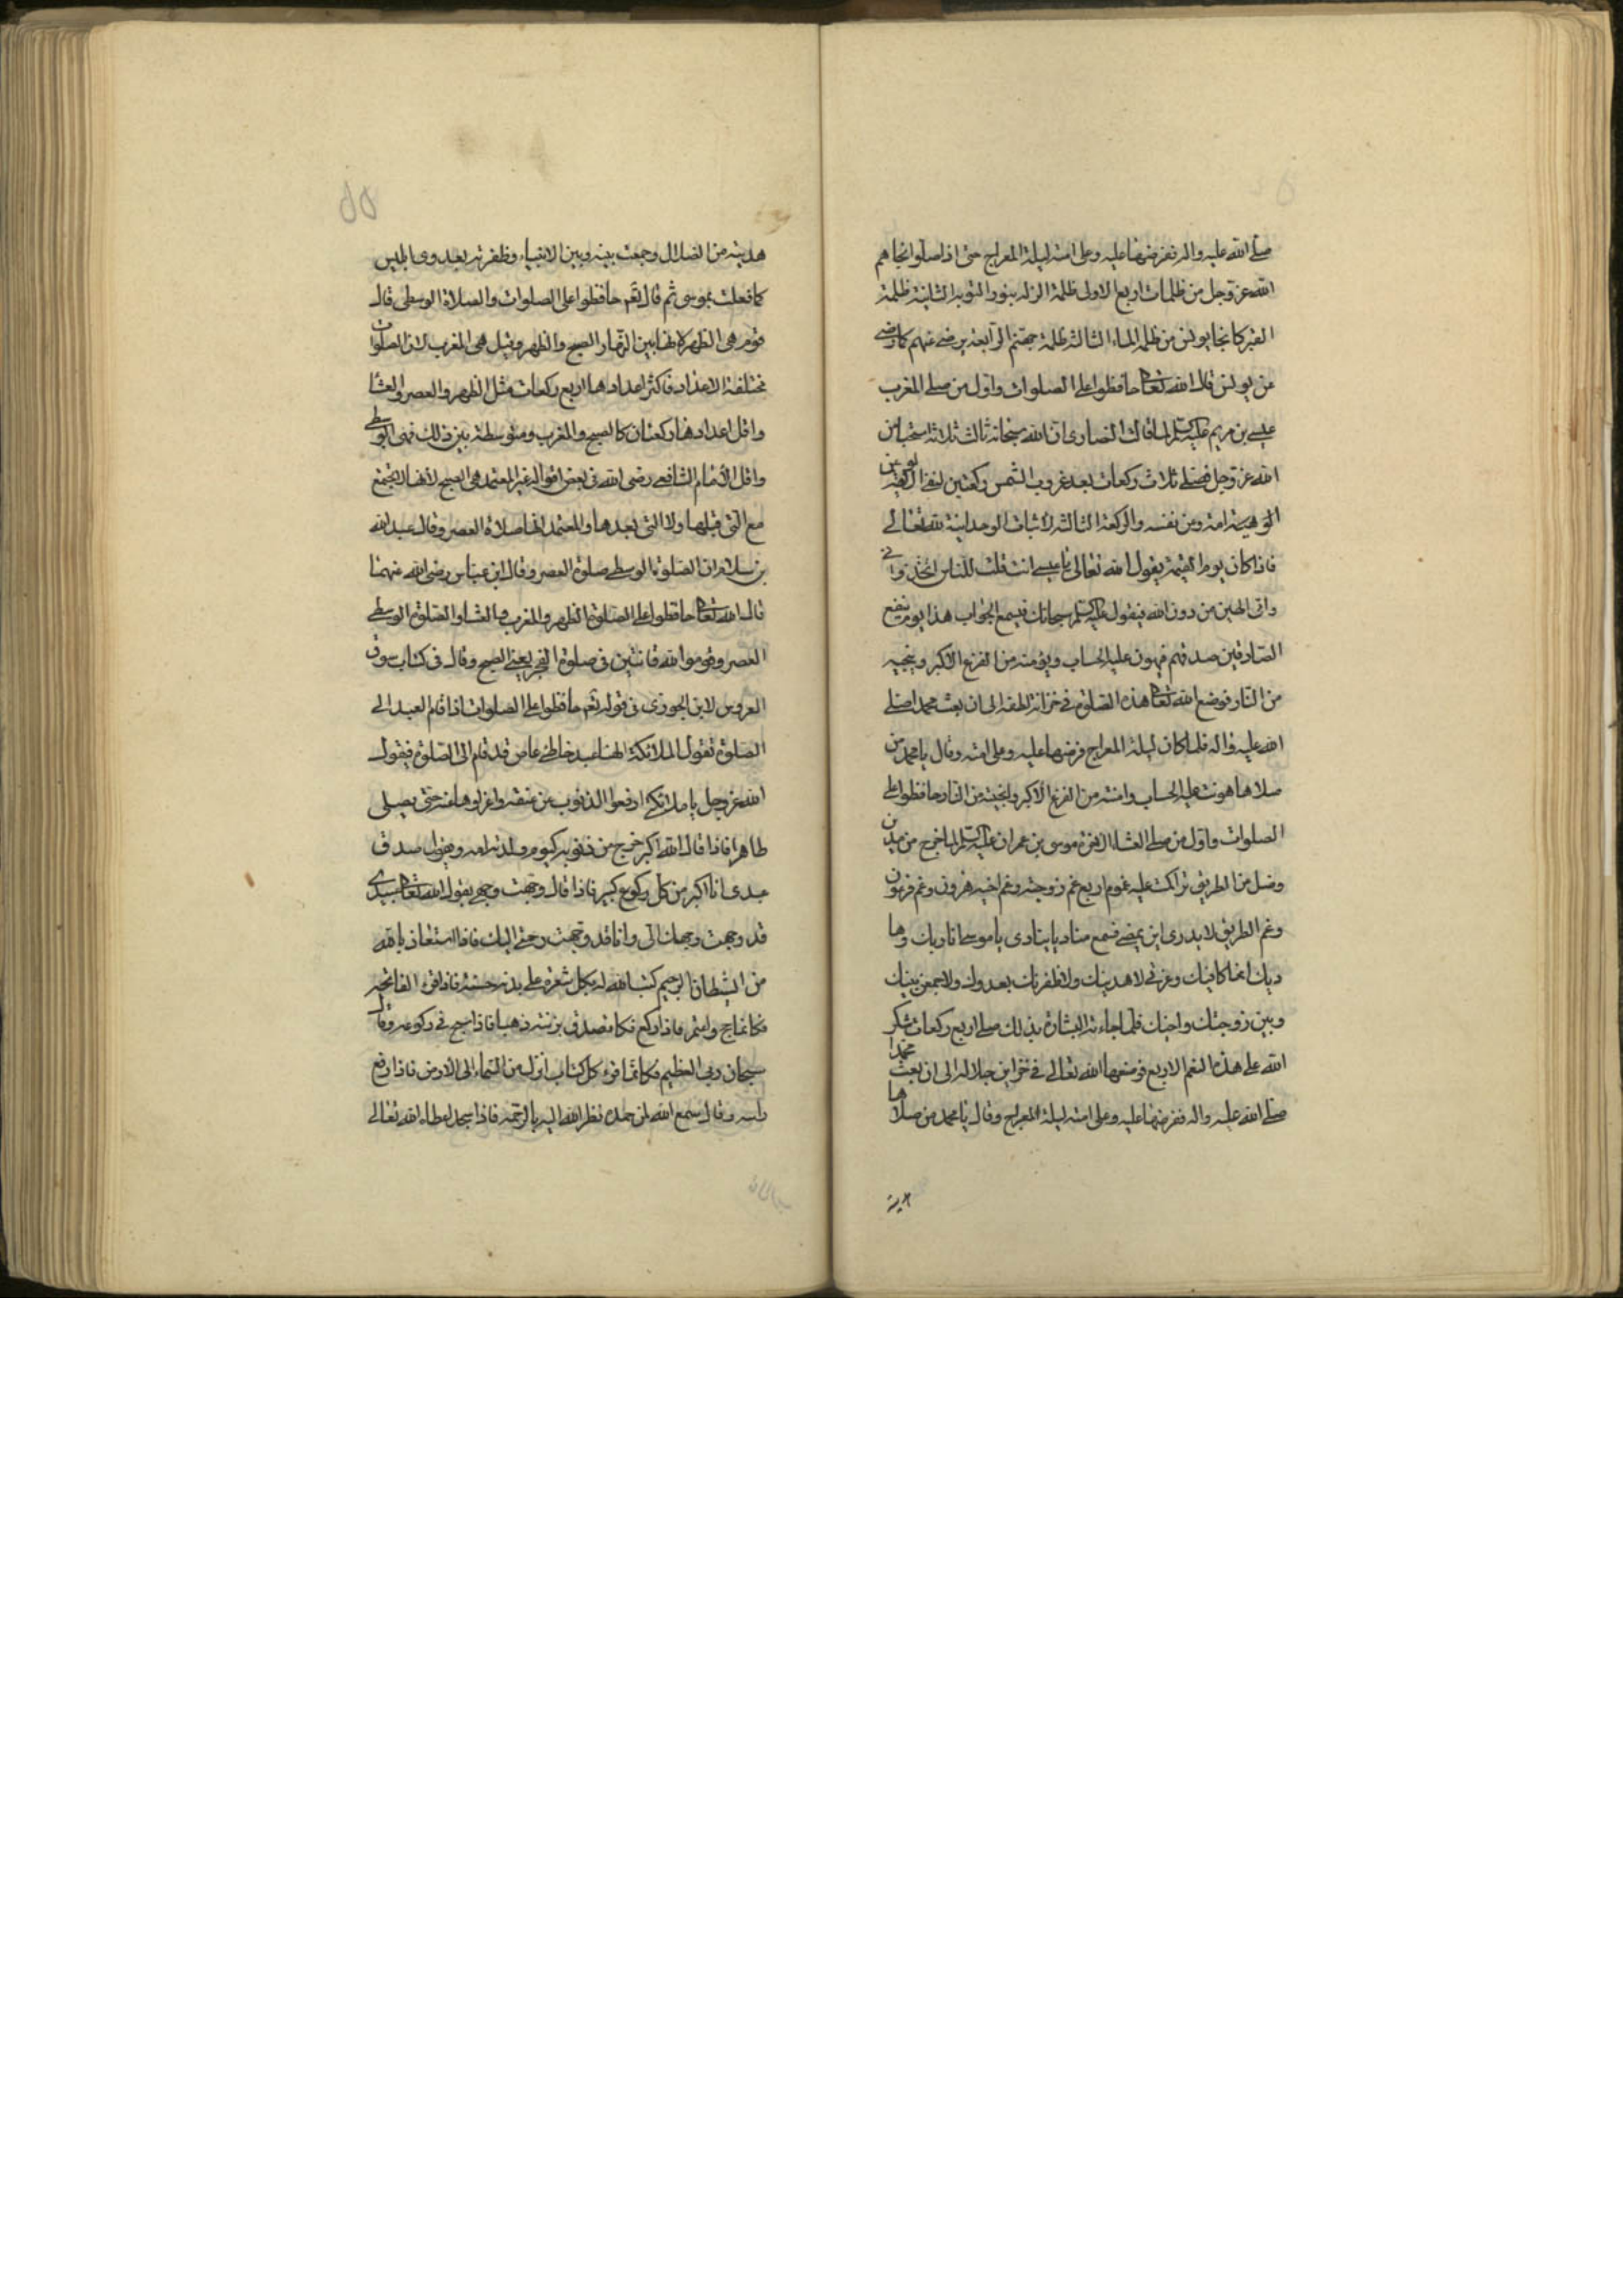 صلى الله عليه واله ففرضها عليه وعلى امته ليلة المعراج حتى اذا صلوا نجاهم
الله عز وجل من ظلمات اربع الاولى ظلمة الزلة بنور التوبة الثانية ظلمة
القبر كما نجا يونس من ظلمة الماء الثالثة ظلمة جهنم الرابعة يرضى عنهم كما رضى
عن يونس قال الله تعالى حافظوا على الصلوات واول من صلى المغرب
عيسى بن مريم عليه السلم لما قالت النصارى ان الله سبحانه ثالث ثلاثة استحيا من
الله عز وجل فصلى ثلاث ركعات بعد غروب الشمس ركعتين لنفى الالوهية عن
الوهية امه ومن نفسه والركعة الثالثة لاثبات الوحدانية لله تعالى
فاذا كان يوم القيمة يقول الله تعالى يا عيسى انت قلت للناس اتخذونى
وامى الهين من دون الله فيقول عليه السلم سبحانك فيسمع الجواب هذا يوم ينفع
الصادقين صدقهم فيهون عليه الحساب ويؤمنه من الفزع الاكبر وينجيه
من النار فوضع الله تعالى هذه الصلوة فى خزانة لطفه الى ان بعث محمدا صلى
الله عليه واله فلما كان ليلة المعراج فرضها عليه وعلى امته وقال يا محمد من
صلاها هونت عليه الحساب وامنته من الفزع الاكبر وانجيته من النار حافظوا على
الصلوات واول من صلى العشاء الاخرة موسى بن عمران عليه السلم لما خرج من مدين
وضل من الطريق تراكمت عليه غموم اربع غم زوجته وغم اخيه هرون وغم فرعون
وغم الطريق لا يدرى اين يمضى فسمع مناديا ينادى يا موسى انا ربك وها
ديك انما كافيك وعزتى لاهدينك ولاظفرنك بعدوك ولاجمعن بينك
وبين زوجتك واخيك فلما جاءته البشارة بذلك صلى اربع ركعات شكر
الله على هذه النعم الاربع فوضعها الله تعالى فى خزاين جلاله الى ان بعث محمدا
صلى الله عليه واله ففرضها عليه وعلى امته ليلة المعراج وقال يا محمد من صلاها
هديته من الضلال وجمعت بينه وبين الانبياء وظفرته بعدوى ابليس
كما فعلت بموسى ثم قال تعم حافظوا على الصلوات والصلاة الوسطى قال
قوم هى الظهر لانها بين النهار الصبح والظهر وقيل هى المغرب لان الصلوات
مختلفة الاعداد فاكثر اعدادها اربع ركعات مثل الظهر والعصر والعشا
واقل اعدادها ركعتان كالصبح والمغرب ومتوسطة بين ذلك فهى الوسطى
وقال الامام الشافعى رضى الله فى بعض اقواله غير المعتمد هى الصبح لانها لا تجتمع
مع التى قبلها ولا التى بعدها والمعتمد انها صلاة العصر وقال عبد الله
بن سلام ان الصلوة الوسطى صلوة العصر وقال ابن عباس رضى الله عنهما
قال الله تعالى حافظوا على الصلوة الظهر والمغرب والعشاء والصلوة الوسطى
العصر وقوموا لله قانتين فى صلوة الفجر يعنى الصبح وقال فى كتاب سوق
العروس لابن الجوزى فى قوله تعم حافظوا على الصلوات اذا قام العبد الى
الصلوة تقول الملائكة الهنا عبد خاطى عاص قد قام الى الصلوة فيقول
الله عز وجل يا ملائكتى ارفعوا الذنوب عن عنقه واعزلوها عنه حتى يصلى
طاهرا فاذا قال الله اكبر خرج من ذنوبه كيوم ولدته امه ويقول صدق
عبدى انا اكبر من كل كبير فاذا قال وجهت وجهى يقول الله تعالى عبدى
قد وجهت وجهك الى وانا قد وجهت رحمتى اليك فاذا استعاذ بالله
من الشيطان الرجيم كتب الله له بكل شعرة على بدنه حسنة فاذا قرء الفاتحة
فكانما حج واعتمر فاذا ركع فكانما تصدق بزنته ذهبا فاذا سبح فى ركوعه وقال
سبحان ربى العظيم فكانما قرء كل كتاب انزل من السماء الى الارض فاذا رفع
راسه وقال سمع الله لمن حمده نظر الله اليه بالرحمة فاذا سجد اعطاه الله تعالى